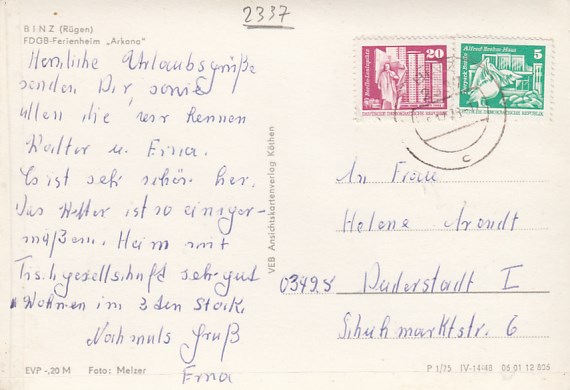 2337
BINZ (Rügen)
FDGB-Ferienheim „Arkona"
Herzliche Urlaubsgrüße
senden Dir sowie
allen die wir kennen
Walter u. Erna.
Es ist sehr schön hier.
Das Wetter ist so einiger-
maßen. Heim mit
Tischgesellschaft sehr gut
Wohnen im 3 den Stock.
Nochmals Gruß
Erna
EVP -,20 M Foto: Melzer
VEB Ansichtskartenverlag Köthen
20
Berlin-Leninplatz
DEUTSCHE DEMOKRATISCHE REPUBLIK
5
Alfred Brehm Haus
Tierpark Berlin
DEUTSCHE DEMOKRATISCHE REPUBLIK
c
An Frau
Helene Arendt
Duderstadt I
Schuhmarktstr. 6
P 1/75 IV-14-48 05 01 12 805